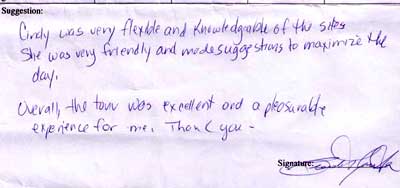 Suggestion:
Cindy was very flexible and knowledgable of the sites
She was very friendly and made suggestions to maximize the
day.
Overall, the tour was excellent and a pleasurable
experience for me. Thank you -
Signature: